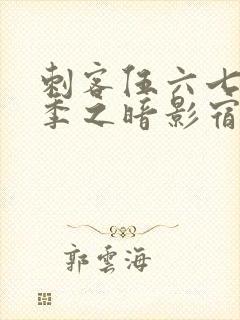 刺客伍六七
季之暗影宿
郭雲海